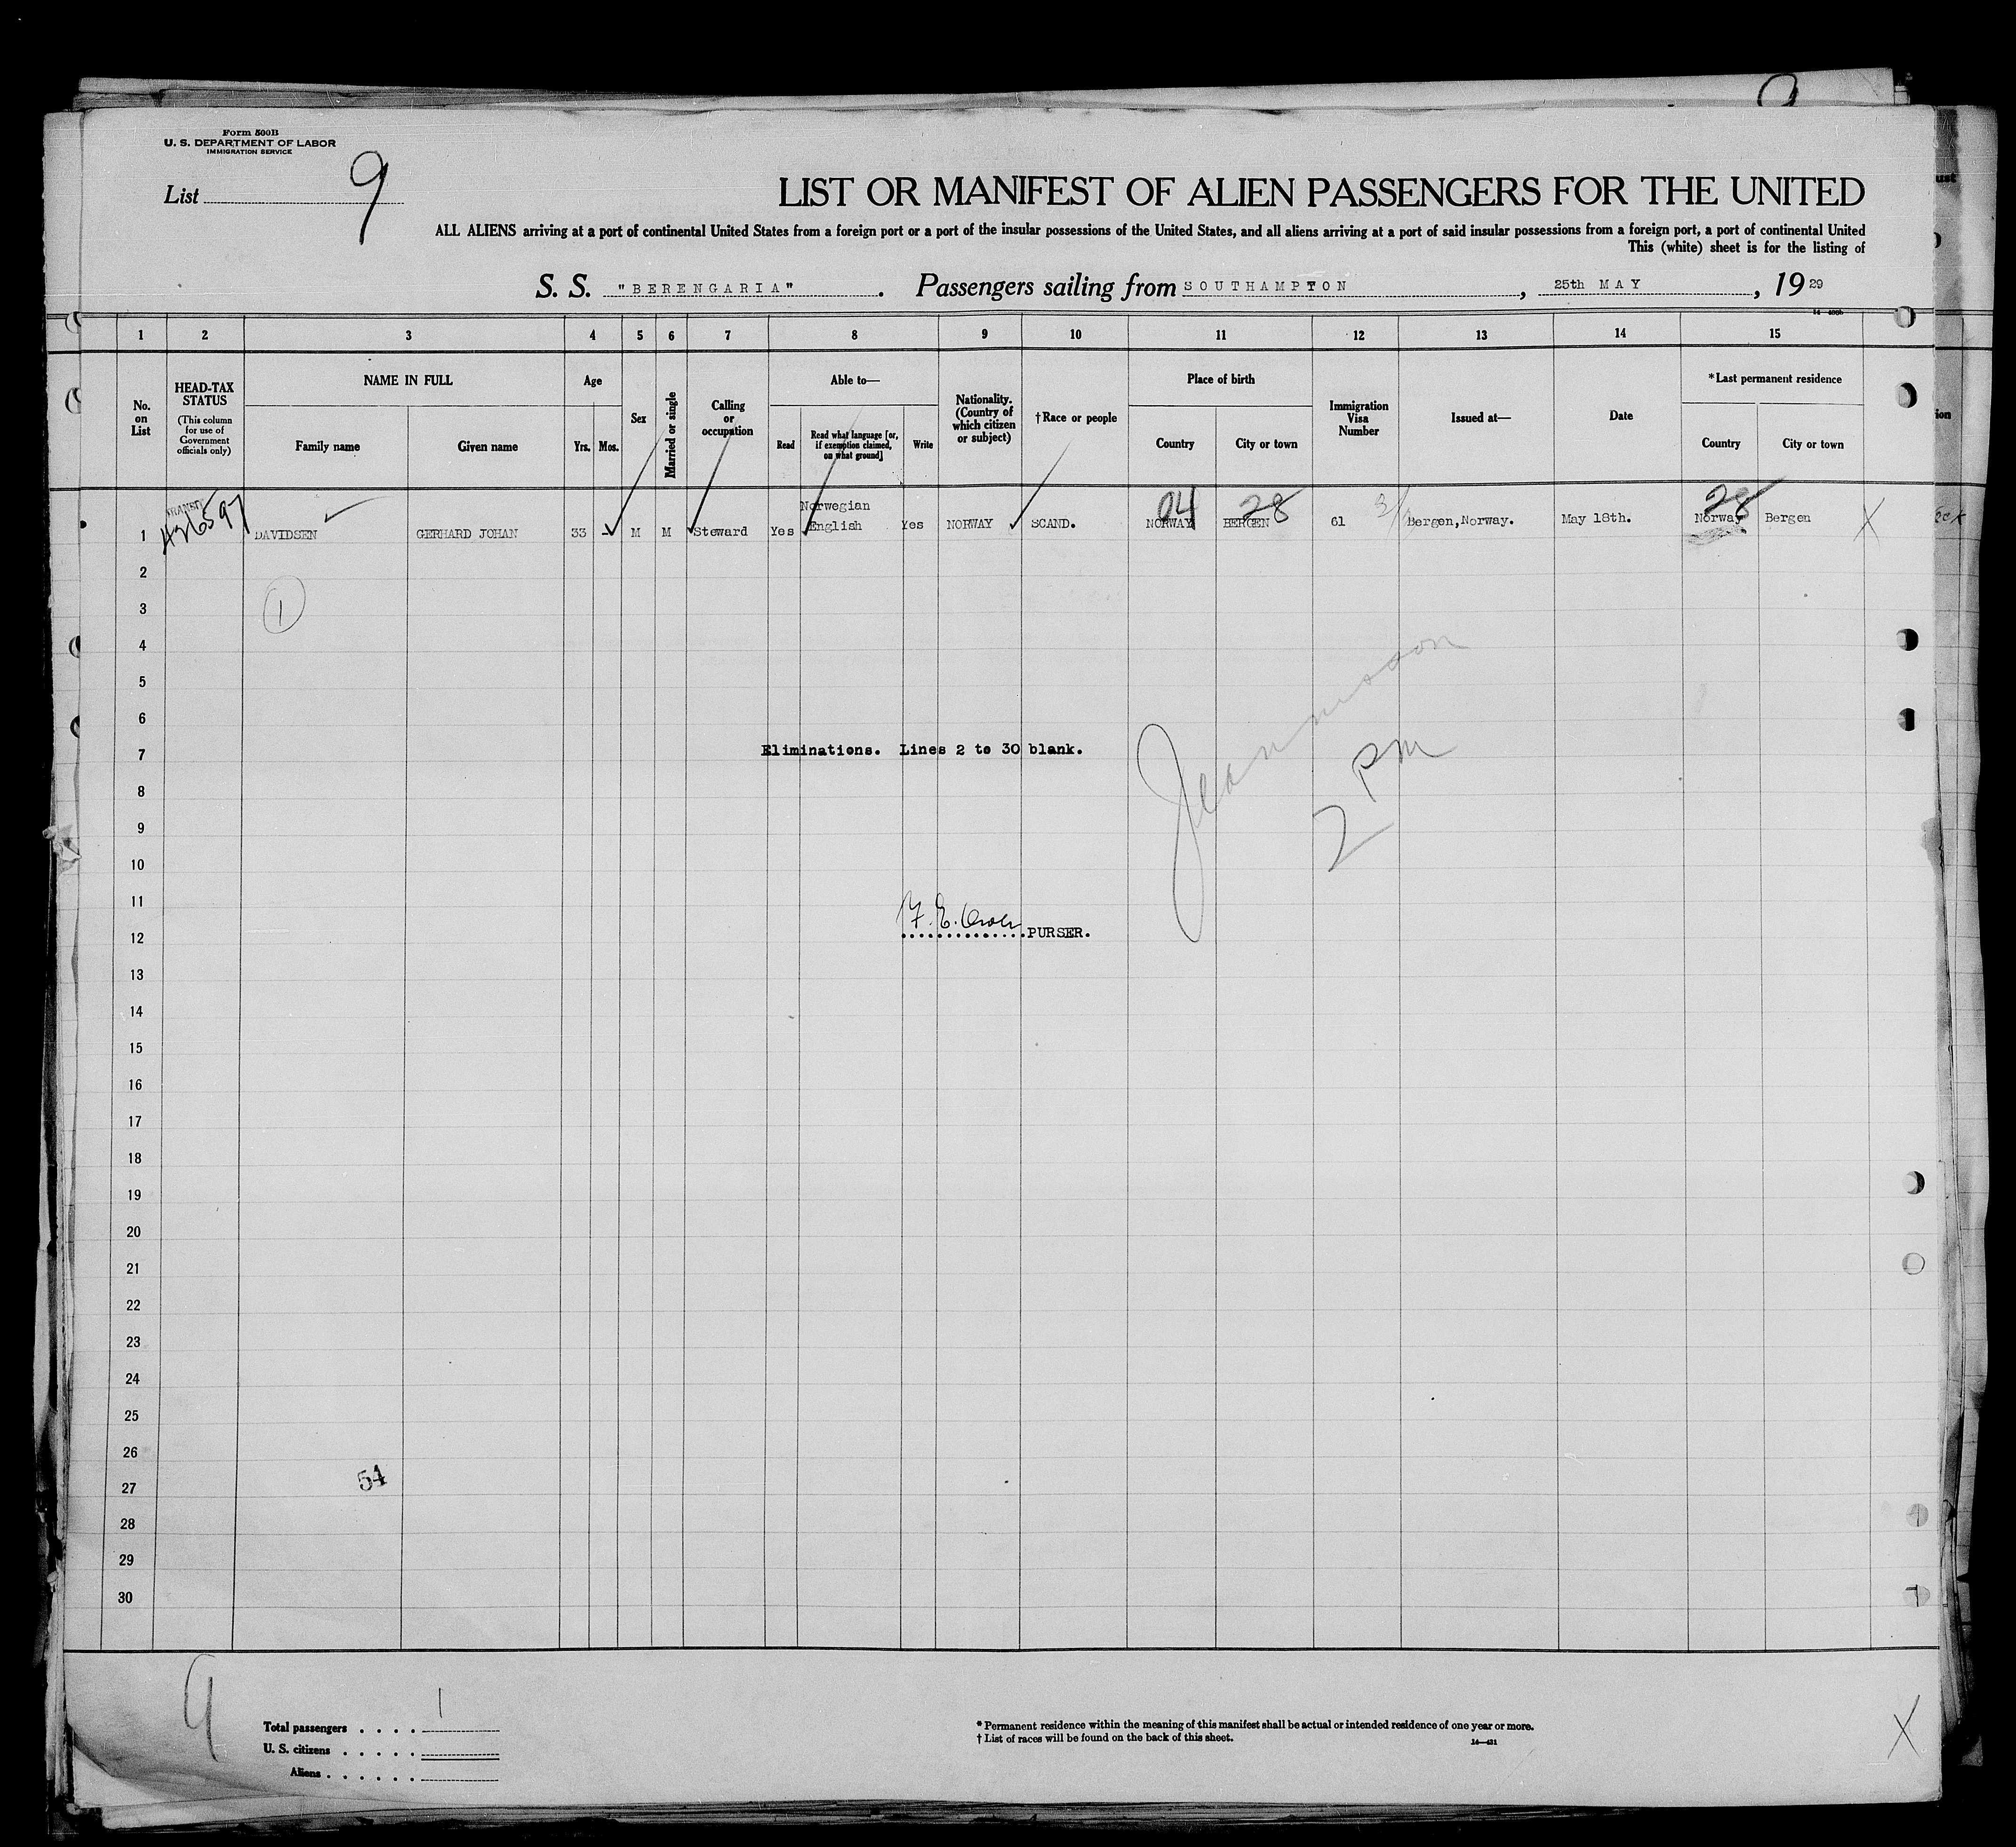 Form 500B
U. S. DEPARTMENT OF LABOR
IMMIGRATION SERVICE
List 9
LIST OR MANIFEST OF ALIEN PASSENGERS FOR THE UNITED
ALL ALIENS arriving at a port of continental United States from a foreign port or a port of the insular possessions of the United States, and all aliens arriving at a port of said insular possessions from a foreign port, a port of continental United
This (white) sheet is for the listing of
S. S. "BERENGARIA". Passengers sailing from SOUTHAMPTON, 25th MAY, 1929
1 2 3 4 5 6 7 8 9 10 11 12 13 14 15
No. on List
HEAD-TAX STATUS (This column for use of Government officials only)
NAME IN FULL
Family name Given name
Age
Yrs. Mos.
Sex
Married or single
Calling or occupation
Able to—
Read
Read what language [or, if exemption claimed, on what ground]
Write
Nationality. (Country of which citizen or subject)
†Race or people
Place of birth
Country City or town
Immigration Visa Number
Issued at—
Date
*Last permanent residence
Country City or town
TRANSIT
04 28 28
Norwegian
1 DAVIDSEN GERHARD JOHAN 33 - M M Steward Yes English Yes NORWAY SCAND. NORWAY BERGEN 61 Bergen,Norway. May 18th. Norway Bergen X
2
1
3
4
5
6
7 Eliminations. Lines 2 to 30 blank.
2 PM
8
9
10
11
12 PURSER.
13
14
15
16
17
18
19
20
21
22
23
24
25
26
54
27
28
29
30
9
Total passengers . . . . 1
U. S. citizens . . . . .
Aliens . . . . . .
* Permanent residence within the meaning of this manifest shall be actual or intended residence of one year or more.
† List of races will be found on the back of this sheet.
14—431
X